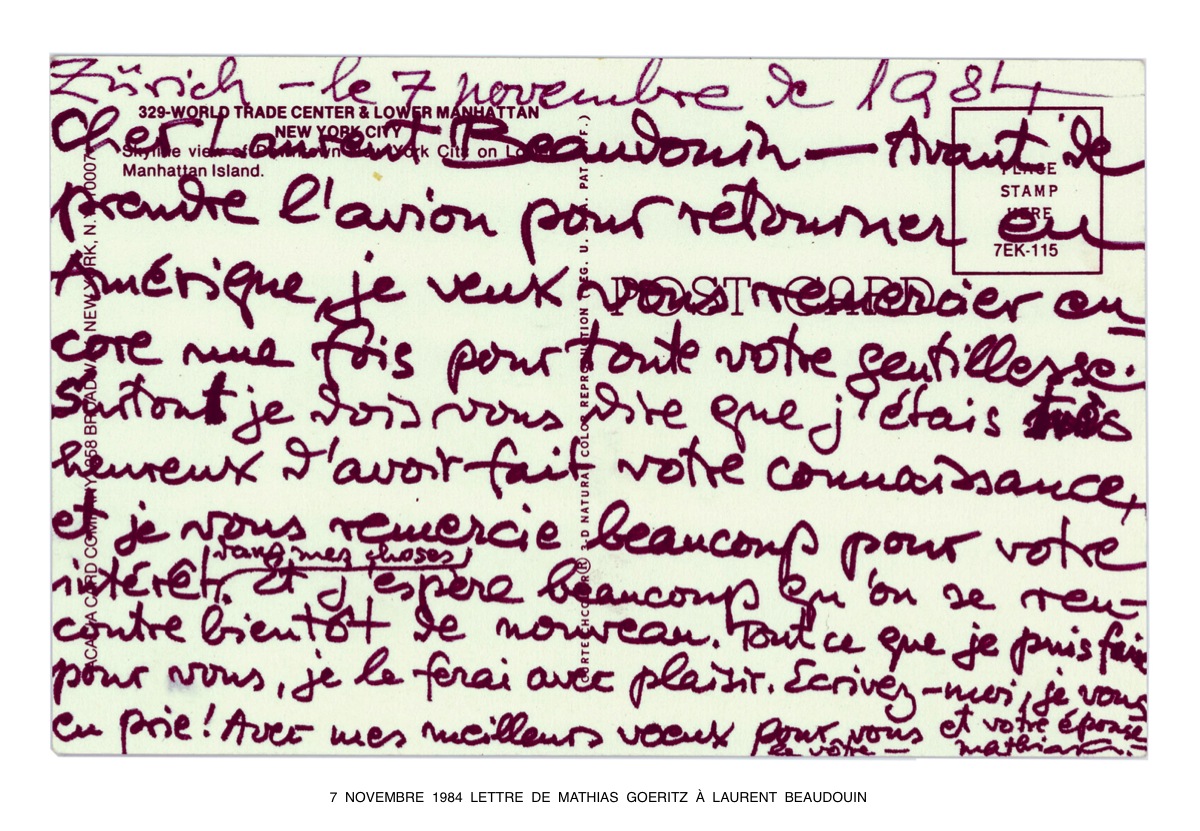 Zürich – le 7 novembre de 1984
329-WORLD TRADE CENTER & LOWER MANHATTAN
NEW YORK CITY
Skyline view of Downtown New York City on Lower
Manhattan Island.
PLACE
STAMP
HERE
7EK-115
POST CARD
Cher Laurent Beaudouin — Avant de
prendre l'avion pour retourner en
Amérique, je veux vous remercier en
core une fois pour toute votre gentillesse.
Surtout je dois vous dire que j'étais très
heureux d'avoir fait votre connaissance,
et je vous remercie beaucoup pour votre
dans mes choses
intérêt. Et j'espère beaucoup qu'on se ren-
contre bientôt de nouveau. Tout ce que je puis faire
pour vous, je le ferai avec plaisir. Ecrivez-moi, je vous
en prie! Avec mes meilleurs voeux pour vous et votre épouse
le vôtre — mathias
ACACIA CARD COMPANY 858 BROADWAY NEW YORK, N. Y. 10007
3-D NATURAL COLOR REPRODUCTION (REG. U. S. PAT. OFF.)
7 NOVEMBRE 1984 LETTRE DE MATHIAS GOERITZ À LAURENT BEAUDOUIN